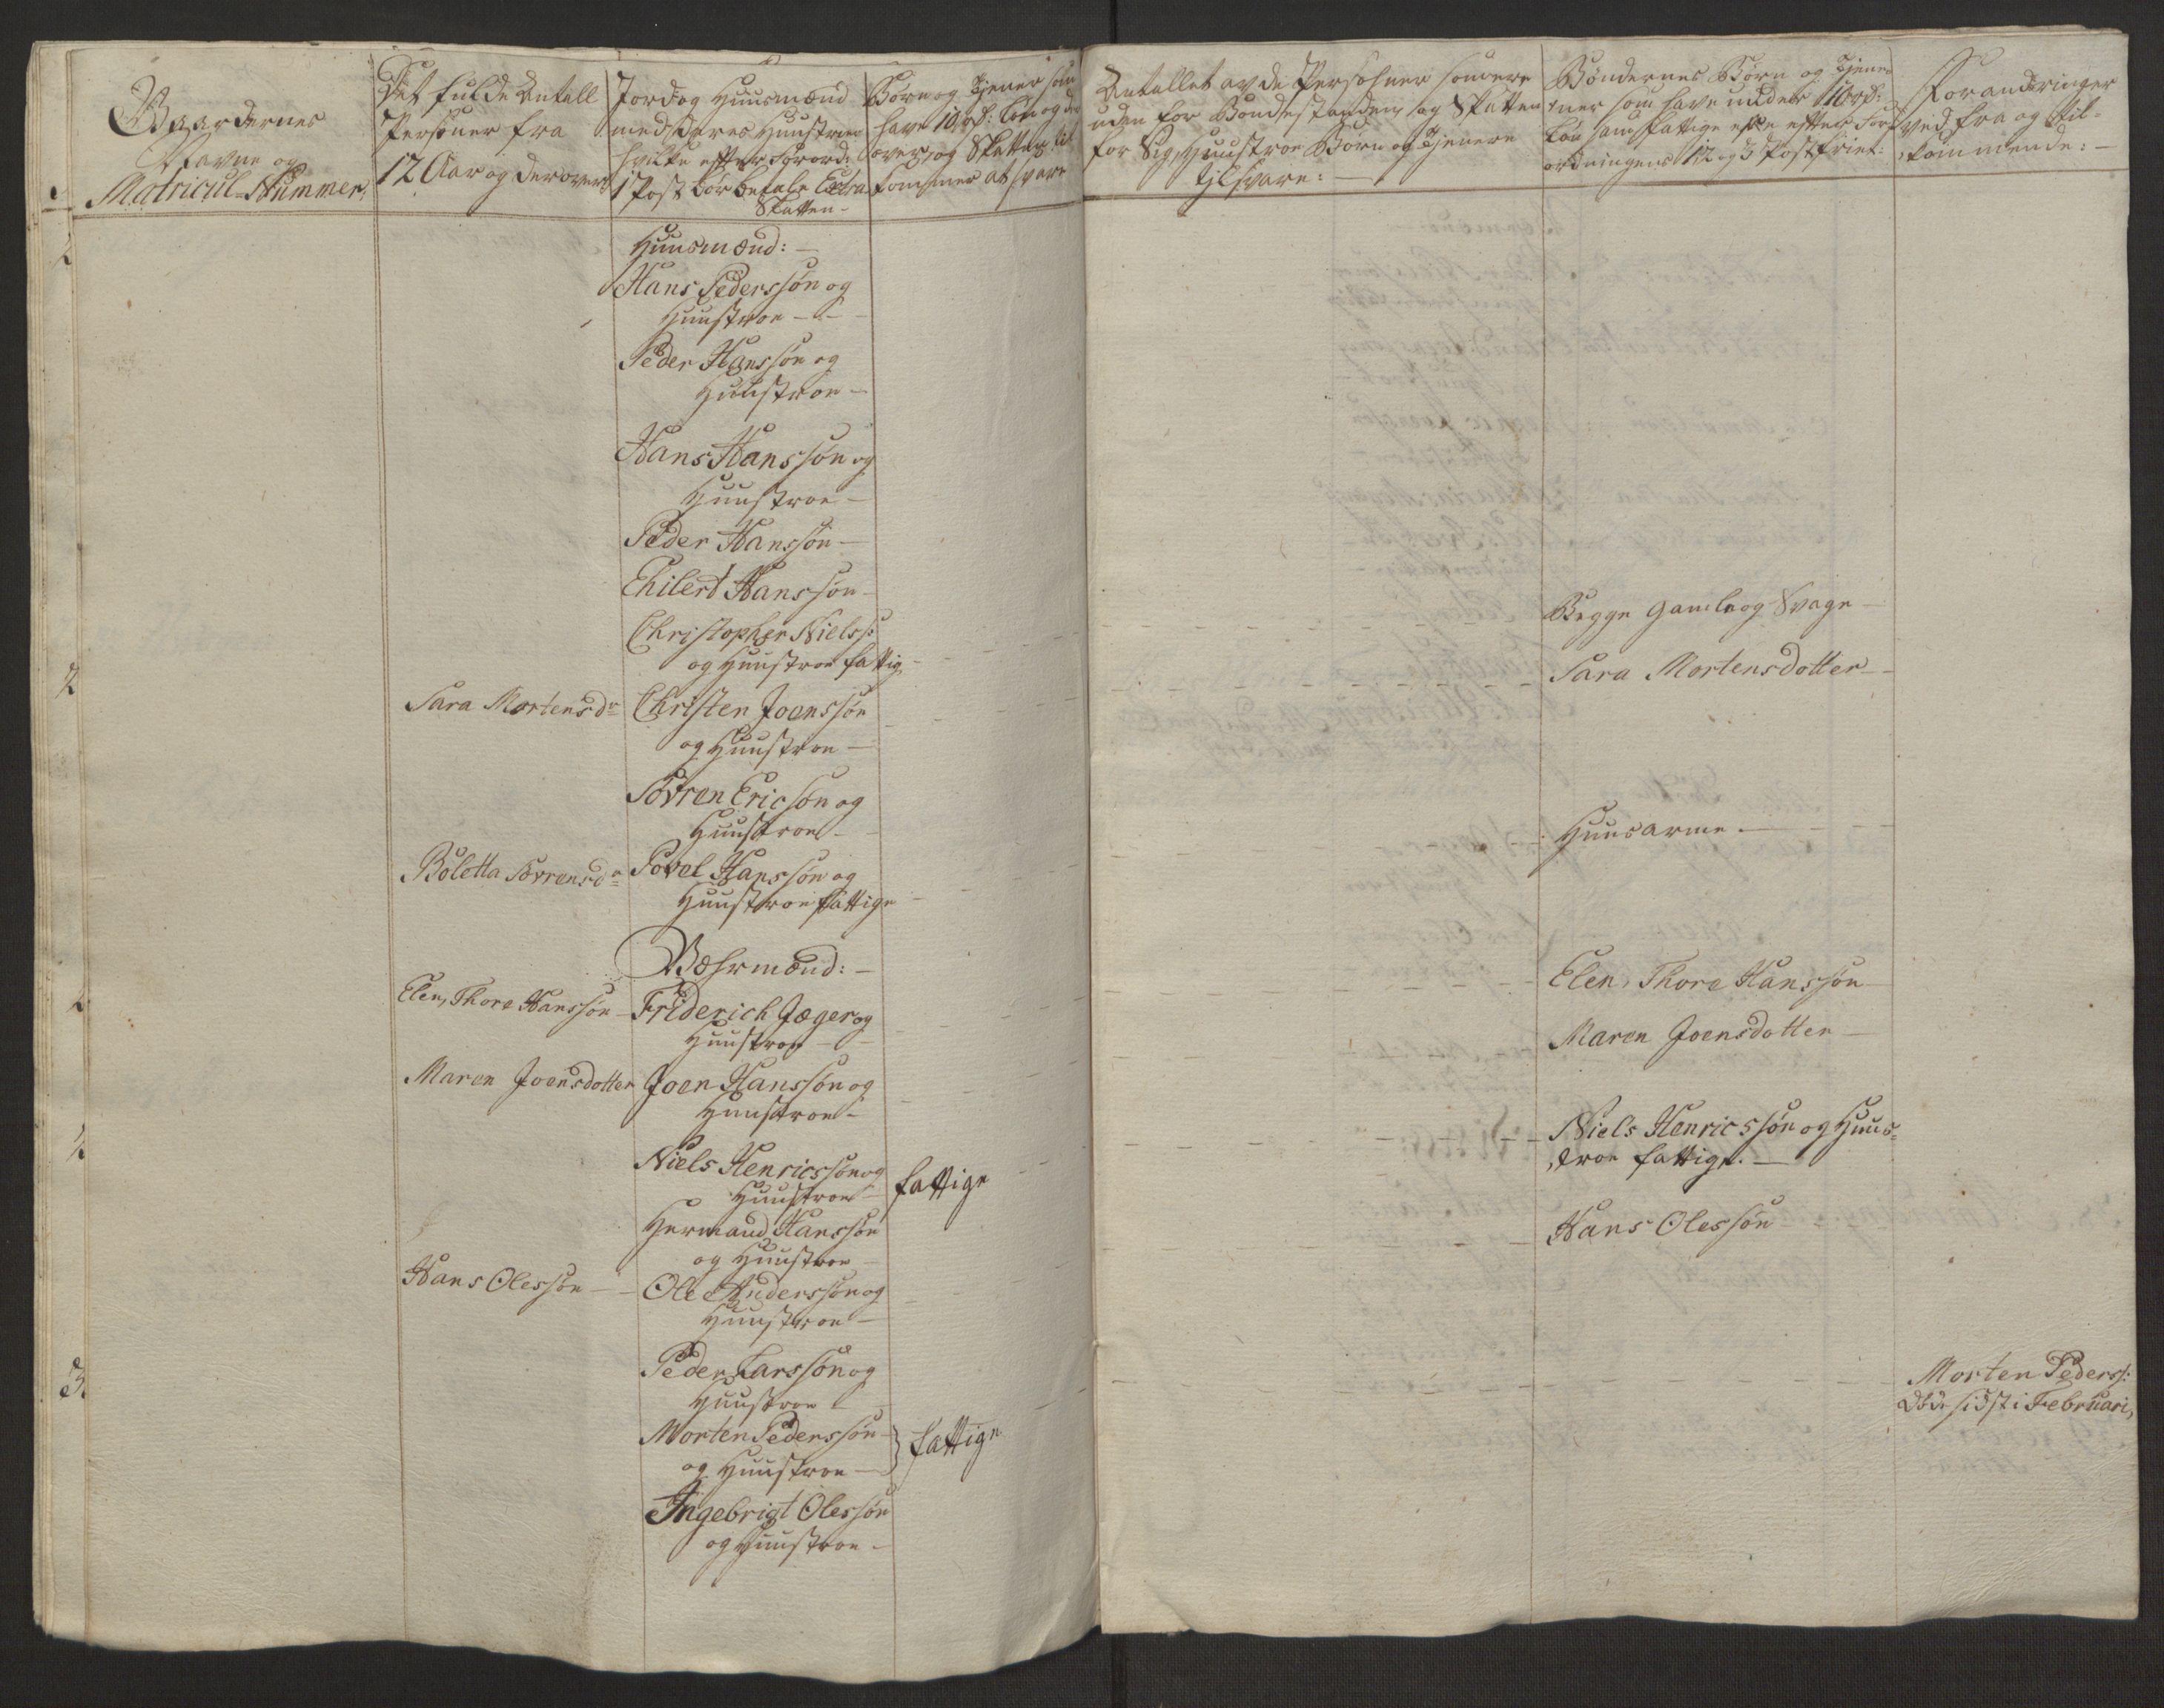 Gaardernes
Navne og
Matricul-Nummer,
Det fulde Antall
Personer fra
12 Aar og derover
Jordog Huusmænd
med deres Huustruer
hvilke efter Forord:
1 Post bør betale Extra
Skatten-
Børn og Tjenere som
have 10 rd: Løn og der
over, og Skatten til
kommer at svare
Antallet av de Persohner som ere
uden for Bondestanden og Skatten
for Sig, Huustroe Børn og Tjenere
tilsvare: —
Bøndernes Børn og Tjene
rner som have under 10 rd:
Løn samt fattige efter For
ordningens 12 og 3 Post frie:
Forandringer
ved fra og til-
kommende: —
Huusmænd: —
Hans Pederssøn og
Huustroe — —
Peder Hanssøn og
Huustroe —
Hans Hanssøn og
Huustroe —
Peder Hanssøn —
Ehilert Hanssøn —
Christopher Nielss:
og Huustroe fattig
Begge gamle og Svage —
2
Sara Mortensdr
Christen Joenssøn
og Huustroe —
Sara Mortensdotter —
Sørren Ericsøn og
Huustroe —
Boletta Sørrensdr
Povel Hanssøn og
Huustroe fattige
Huusarme. —
Væhrmænd: —
Elen, Thore Hanssøn —
Friderich Jæger og
Huustroe —
Elen, Thore Hanssøn —
Maren Joensdotter
Joen Hanssøn og
Huustroe —
Maren Joensdotter —
Niels Henricssøn og
Huustroe —
fattige
Niels Henricssøn og Huus-
troe fattige. —
Hermand Hanssøn
og Huustroe
Hans Olessøn —
Ole Anderssøn og
Huustroe —
Hans Olessøn
3.
Peder Larssøn og
Huustroe
Morten Pederssøn
og Huustroe —
fattige
Morten Peders:
døde sidst i Februari,
Ingebrigt Olessøn
og Huustroe —